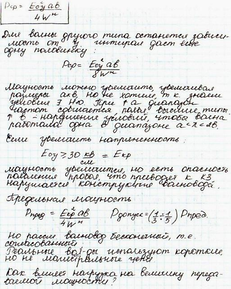 Pпр = E₀y² ab / 4Wᴴ
Для волны другого типа останется зависи-
мость от у интеграл даст ещё
одну половинку:
Pпр = E₀y² ab / 8Wᴴ
Мощность можно увеличить, увеличивая
размеры a и b, но не хотим, т.к. знаем
условия
диапазон
частот
высших типов
↑ b - нарушение условий, чтобы волна
работала одна в диапазоне
Если увеличить напряженность:
E₀y ≥ 30 кВ/см = Eкр
мощность увеличится, но есть опасность
пробоя, что приводит к КЗ
нарушается конструкция волновода.
Предельная мощность
Pпред = E₀² ab / 4Wᴴ Pдопуст = (1/3 ÷ 1/5) Pпред
Но разом волновод бесконечный, т.е.
согласованный.
Реальные используют короткие,
но не
Как влияет нагрузка на величину переда-
ваемой мощности?